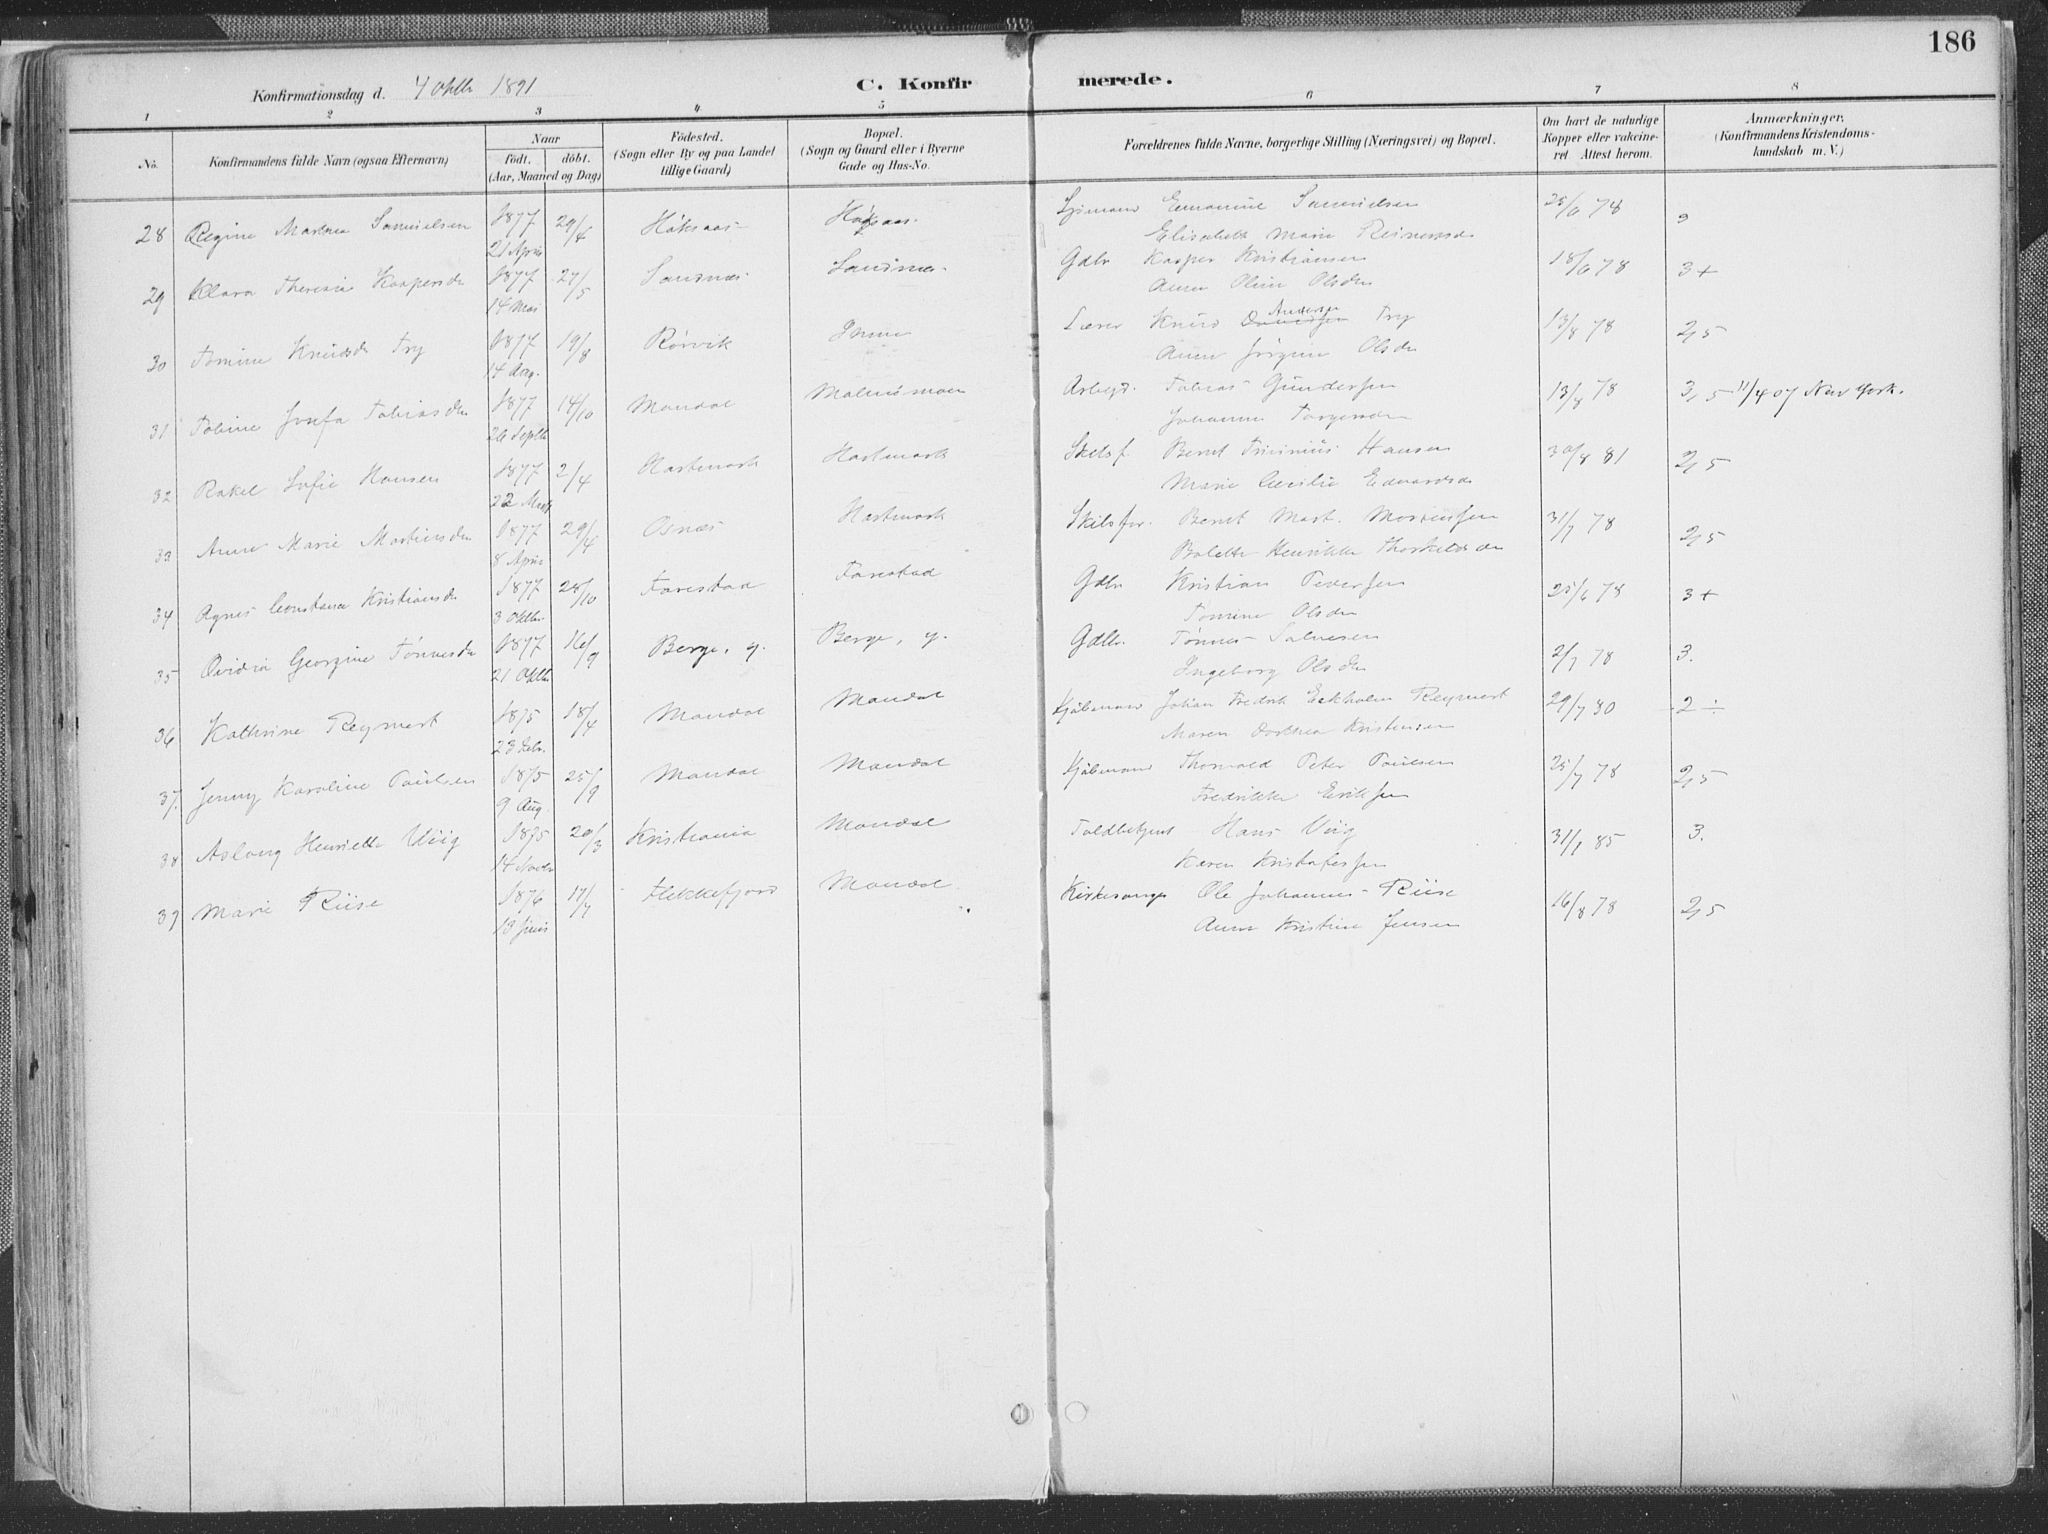 186
Konfirmationsdag d. 4 Oktb 1891 C. Konfir merede.
1 2 3 4 5 6 7 8
No. Konfirmandens fulde Navn (ogsaa Efternavn) Naar født. døbt. (Aar, Maaned og Dag) Födested. (Sogn eller By og paa Landet tillige Gaard) Bopæl. (Sogn og Gaard eller i Byerne Gade og Hus-No. Forældrenes fulde Navne, borgerlige Stilling (Næringsvei) og Bopæl. Om havt de naturlige Kopper eller vakcineret. Attest herom. Anmærkninger. (Konfirmandens Kristendomskundskab m. V.)
28 Regine Samuelsen 1877 21 April 29/4 Høksaas Høksaas Emanuel Samuelsen 25/6 78 3
Elisabeth Marie
29 Klara Theresia Kaspersdr 1877 14 Mai 27/5 Sandnæs Sandnæs Gdbr Kasper Kristiansen 18/6 78 3+
Anna Oline Olsdr
30 Tomine Knudsdr Try 1877 14 Aug. 19/8 Rørvik Lærer Knud Andersen Try 13/8 78 2,5
Anne Jørgine Olsdr
31 Tobine Josefa Tobiasdr 1877 26 Septb 14/10 Mandal Malmømoen Arbejd. Tobias Gundersen 13/8 78 3,5 11/4 07 New York.
Johanne Torgersdr
32 Rakel Sofie Hansen 1877 22 Marts 2/4 Hartmark Hartmark Skibsf. Bernt Hansen 30/8 81 2,5
Marie Cecilie Edvardsdr
33 Anne Marie Martinsdr 1877 8 April 29/4 Osnæs Hartmark Skibsfør. Bernt Mart. Mortensen 31/7 78 2,5
Bolette Henrikke Thorkeldsdr
34 Agnes Constance Kristiansdr 1877 3 Oktbr. 28/10 Farestad Farestad Gdbr Kristian Pedersen 25/6 78 3+
Tomine Olsdr
35 Ovidia Georgine Tønnesdr 1877 21 Oktbr 16/9 Berge, y. Berge, y. Gdbr. Tønnes Salvesen 2/7 78 3.
Ingeborg Olsdr
36 Kathrine Reymert 1875 23 Febr. 18/4 Mandal Mandal Kjøbmand Johan Fredrik Eckholm Reymert 29/7 80 2 ÷
Maren Dorthea Kristensen
37. Jenny Karoline Paulsen 1875 9 Aug. 25/9 Mandal Mandal Kjøbmand Thorvald Peter Paulsen 25/7 78 2,5
Fredrikke Eriksen
38 Aslaug Henriette Uiig 1875 14 Novbr 20/3 Kristiania Mandal Toldbetjent Hans Uiig 31/1 85 3.
Karen Kristofersen
39 Marie Riise 1876 13 Juni 17/7 Flekkefjord Mandal Kirkesanger Ole Johannes Riise 16/8 78 2,5
Anna Kristine Jensen